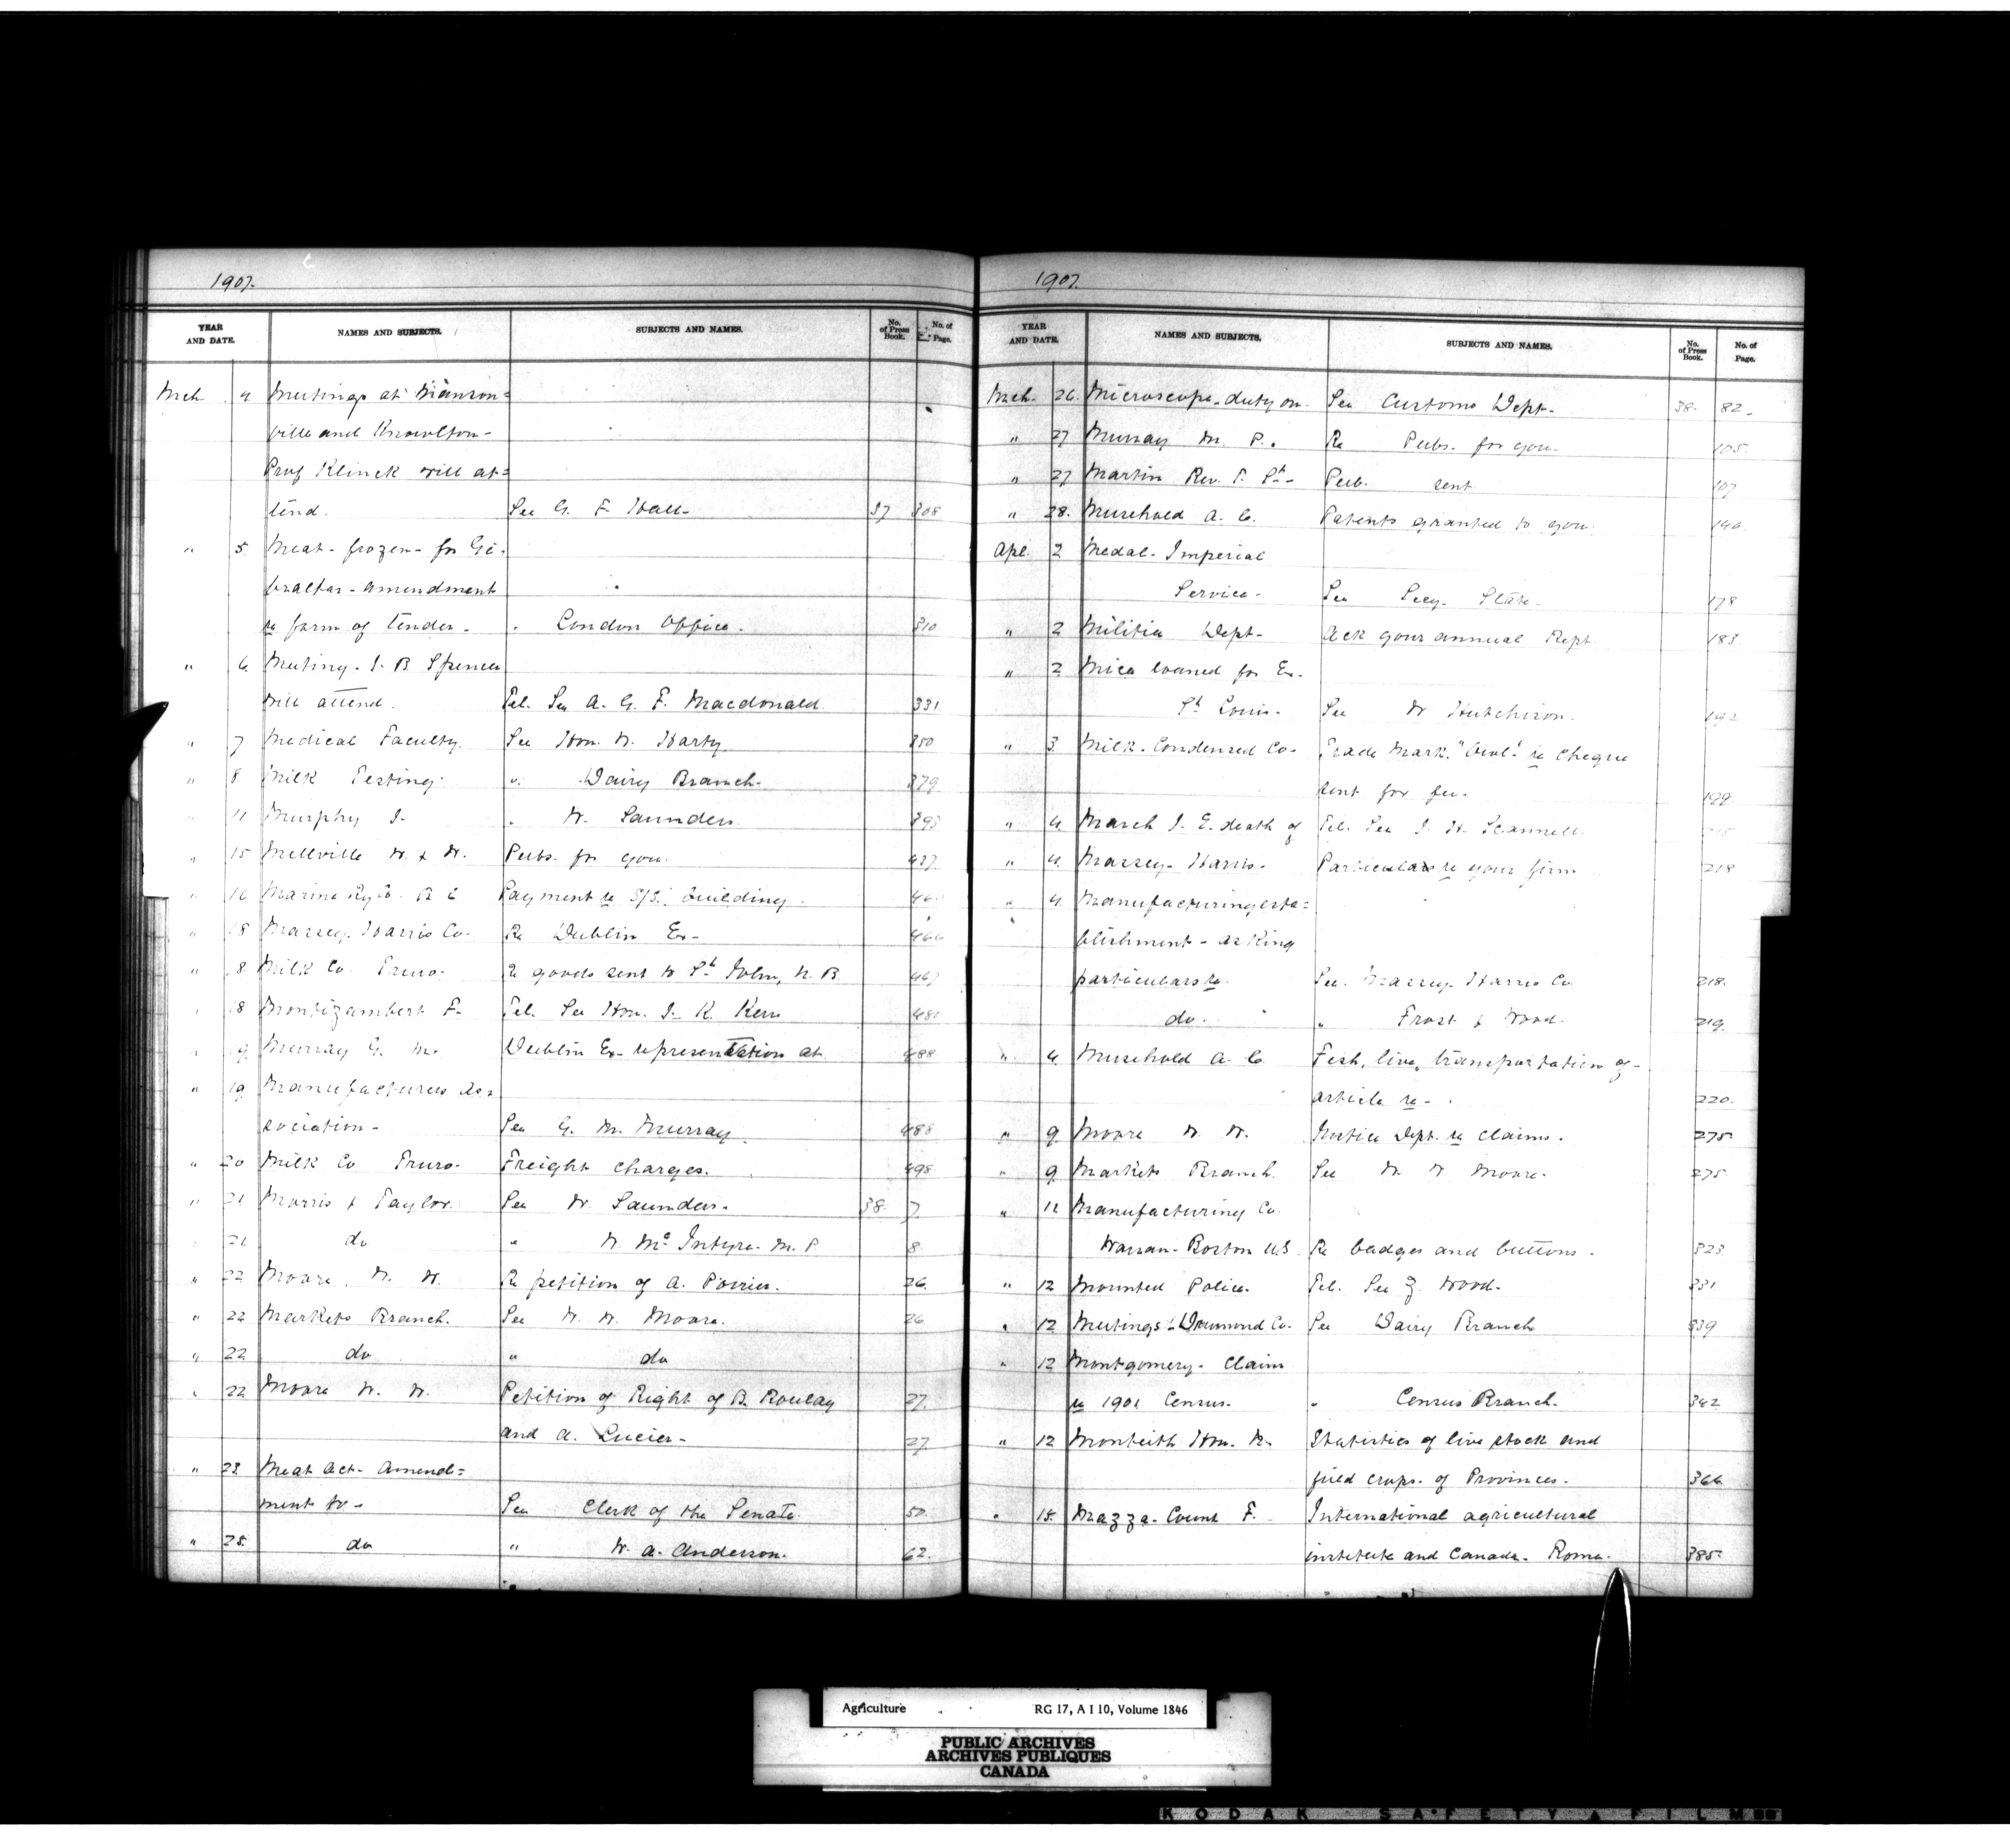 1907.
YEAR AND DATE. NAMES AND SUBJECTS. SUBJECTS AND NAMES. No. of Press Book. No. of Page.
Mch 4 Meetings at Manson=
ville and Knowlton-
Prof Klinck will at=
tend. See G. F. Hall- 37 308
" 5 Meat- frozen- for Gi-
braltar- amendment
re form of tender- " London Office. 310
" 6 Meeting- J. B Spencer
will attend. Tel. See A. G. F. Macdonald 331
" 7 Medical Faculty. See Hon. W. Harty 350
" 8 Milk Testing " Dairy Branch- 379
" 11 Murphy J- " W. Saunders. 393
" 15 Mellville W. & W. Pubs. for you. 437
" 16 Marine Ry Co. B C Payment re S/S. building.
" 18 Massey. Harris Co. Re Dublin Ex- 466
" 18 Milk Co. Truro. Re goods sent to St. John, N. B 467
" 18 Montizambert F- Tel. See Hon. J- K. Kerr
" 19 Murray G. M. Dublin Ex- representation at 488
" 19 Manufacturers As=
sociation- See G. M. Murray. 488
" 20 Milk Co Truro. Freight charges. 498
" 21 Morris & Taylor. See W. Saunders. 38. 7.
" 21 do " W. McIntyre. M. P 8.
" 22 Moore. W. W. Re petition of A. Poirier. 26.
" 22 Markets Branch. See W. W. Moore. 26
" 22 do " do
" 22 Moore W. W. Petition of Right of B. Roulay 27.
and A. Lucier- 27.
" 23. Meat Act- Amend=
ment to- See Clerk of the Senate. 50.
" 25. do " W. A. Anderson. 62.
1907.
YEAR AND DATE. NAMES AND SUBJECTS. SUBJECTS AND NAMES. No. of Press Book. No. of Page.
Mch. 26. Microscope- duty on. See Customs Dept- 38. 82-
" 27 Murray M. P. Re Pubs. for you. 105.
" 27 Martin Rev. P. St- Pub. sent 107
" 28. Musehold A. C. Patents granted to you. 140.
Apl. 2 Medal- Imperial
Service- See Secy. State- 178
" 2 Militia Dept- Ack your annual Rept 183.
" 2 Mica loaned for Ex-
St Louis- See W Hutchison. 192
" 3. Milk- Condensed Co- Trade Mark. "Owl" re cheque
sent for fee. 199.
" 4. March J. E. death of Tel. See J. H. Scannell
" 4. Massey- Harris- Particulars re your firm 218
" 4. Manufacturing esta=
blishment- asking
particulars re. See. Massey- Harris Co. 218.
do. " Frost & Wood. 219.
" 4. Musehold A. C. Fish, live, transportation of-
article re- 220.
" 9. Moore W. W. Justice Dept. re claims. 275
" 9. Markets Branch. See W. W. Moore. 275.
" 11 Manufacturing Co.
Warran- Boston U.S. Re badges and buttons. 323.
" 12 Mounted Police. Tel. See Z. Wood. 331
" 12 Meetings- Drummond Co. See Dairy Branch 339
" 12 Montgomery- Claim
re 1901 Census. " Census Branch. 342
" 12 Monteith Hon. N. Statistics of live stock and
field crops. of Provinces. 366
" 15. Mazza- Count F. International agricultural
institute and Canada. Rome. 385
Agriculture RG 17, A I 10, Volume 1846
PUBLIC ARCHIVES
ARCHIVES PUBLIQUES
CANADA
KODAK SAFETY FILM